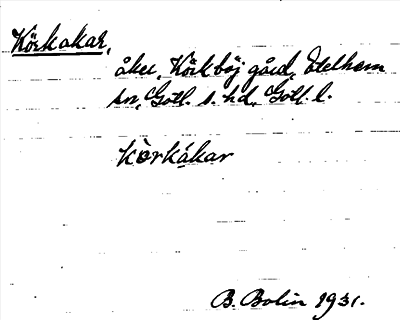 Körkakar,
åker, Körkböj gård, Etelhem
sn, Gotl. s. hd, Gotl. l.
kòrkákar
B. Bolin 1931.